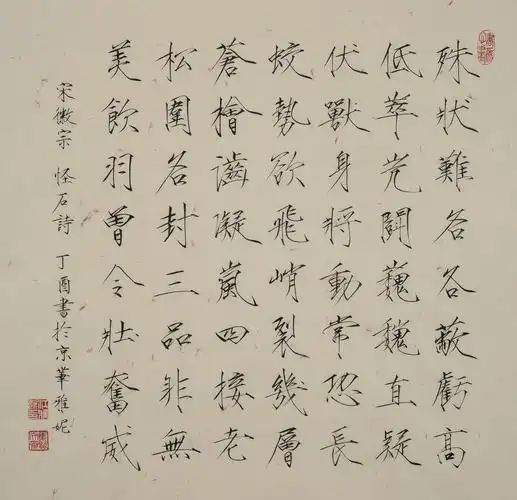 殊狀難名各蔽虧高
低萃克鬪巍巍直疑
伏獸身將動常恐長
蛟勢欲飛峭裂幾層
蒼檜凝嵐四接老
松圍名封三品非無
美飲羽曾令壯奮威
宋徽宗 怪石詩 丁酉書於京華雅妮